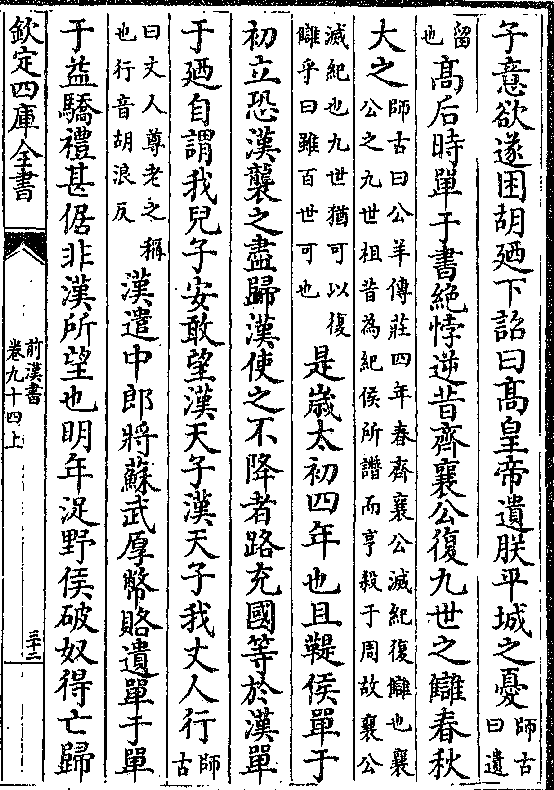 子意欲遂困胡廼下詔曰髙皇帝遺朕平城之憂師古曰遺
留也髙后時單于書絶悖逆昔齊襄公復九世之讎春秋
大之師古曰公羊傳莊四年春齊襄公滅紀復讎也襄公之九世祖昔為紀侯所譖而亨殺于周故襄公
滅紀也九世猶可以復讎乎曰雖百世可也是歲太初四年也且鞮侯單于
初立恐漢襲之盡歸漢使之不降者路充國等於漢單
于廼自謂我兒子安敢望漢天子漢天子我丈人行師古
曰丈人尊老之稱也行音胡浪反漢遣中郎將蘇武厚幣賂遺單于單
于益驕禮甚倨非漢所望也明年浞野侯破奴得亡歸
欽定四庫全書
前漢書
卷九十四上
三十二